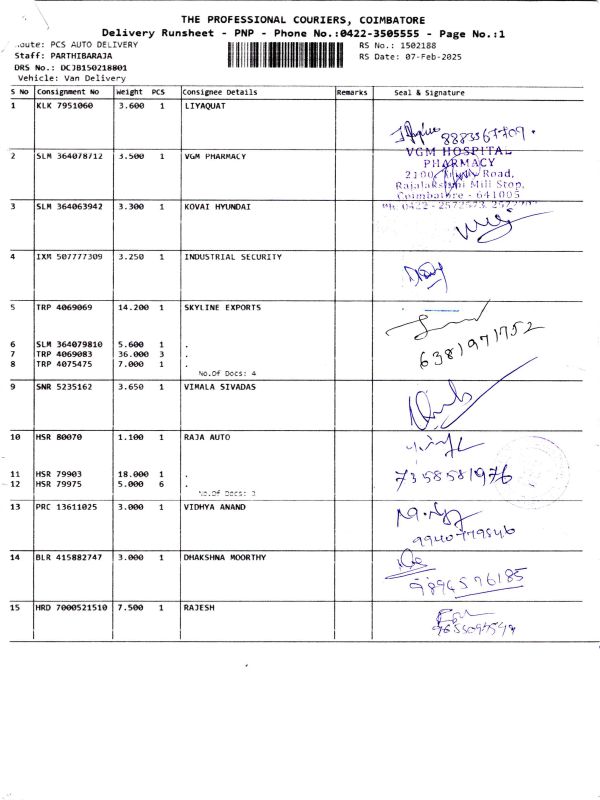 THE PROFESSIONAL COURIERS, COIMBATORE
Delivery Runsheet - PNP - Phone No.:0422-3505555 - Page No.:1
Route: PCS AUTO DELIVERY
RS No.: 1502188
Staff: PARTHIBARAJA
RS Date: 07-Feb-2025
DRS No.: DCJB150218801
Vehicle: Van Delivery
S No Consignment No Weight PCS Consignee Details Remarks Seal & Signature
1 KLK 7951060 3.600 1 LIYAQUAT
8883567709.
2 SLM 364078712 3.500 1 VGM PHARMACY
VGM HOSPITAL
PHARMACY
2100, Road,
Rajalakshmi Mill Stop,
Coimbatore - 641005
Ph: 0422 - 2572573,
3 SLM 364063942 3.300 1 KOVAI HYUNDAI
4 IXM 507777309 3.250 1 INDUSTRIAL SECURITY
5 TRP 4069069 14.200 1 SKYLINE EXPORTS
6381971752
6 SLM 364079810 5.600 1 .
7 TRP 4069083 36.000 3 .
8 TRP 4075475 7.000 1 .
No.Of Docs: 4
9 SNR 5235162 3.650 1 VIMALA SIVADAS
10 HSR 80070 1.100 1 RAJA AUTO
7358581976
11 HSR 79903 18.000 1 .
12 HSR 79975 5.000 6 .
No.Of Docs: 3
13 PRC 13611025 3.000 1 VIDHYA ANAND
9940779546
14 BLR 415882747 3.000 1 DHAKSHNA MOORTHY
9894576185
15 HRD 7000521510 7.500 1 RAJESH